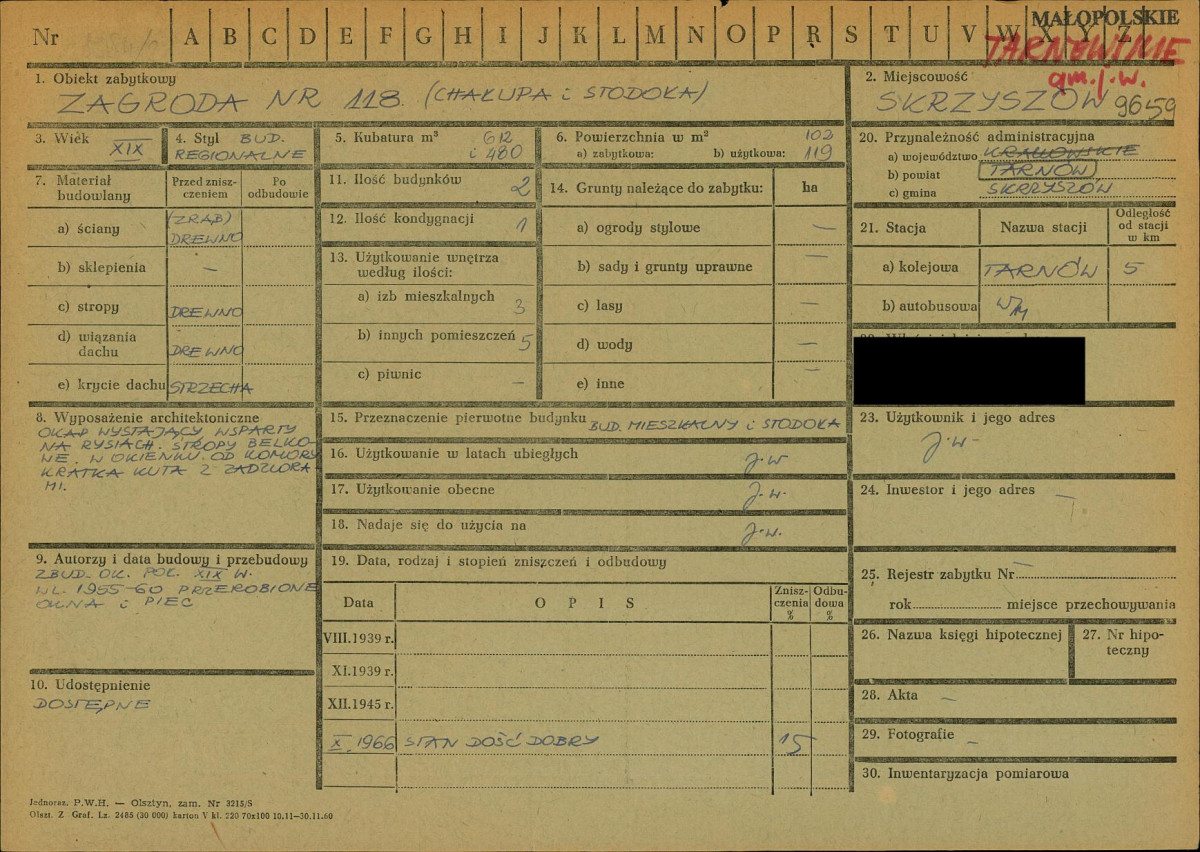 Nr A B C D E F G H I J K L M N O P R S T U V W X Y Z
MAŁOPOLSKIE
TARNOWSKIE
gm. j.w.
1. Obiekt zabytkowy
ZAGRODA NR 118. (CHAŁUPA i STODOŁA)
2. Miejscowość
SKRZYSZÓW 9659
3. Wiek XIX
4. Styl BUD.
REGIONALNE
5. Kubatura m³ 612
i 480
6. Powierzchnia w m² 102
a) zabytkowa: b) użytkowa: 119
7. Materiał budowlany
Przed zniszczeniem
Po odbudowie
a) ściany (ZRĄB) DREWNO
b) sklepienia —
c) stropy DREWNO
d) wiązania dachu DREWNO
e) krycie dachu STRZECHA
8. Wyposażenie architektoniczne
OKAP WYSTAJĄCY WSPARTY
NA RYSIACH. STROPY BELKO-
WE. W OKIENKU OD KOMORY
KRATKA KUTA Z ZADZIORA
MI.
9. Autorzy i data budowy i przebudowy
ZBUD. OK. POŁ. XIX W.
W L. 1955-60 PRZEROBIONE
OKNA i PIEC
10. Udostępnienie
DOSTĘPNE
11. Ilość budynków 2
12. Ilość kondygnacji 1
13. Użytkowanie wnętrza
według ilości:
a) izb mieszkalnych 3
b) innych pomieszczeń 5
c) piwnic —
14. Grunty należące do zabytku: ha
a) ogrody stylowe —
b) sady i grunty uprawne —
c) lasy —
d) wody —
e) inne —
15. Przeznaczenie pierwotne budynku BUD. MIESZKALNY i STODOŁA
16. Użytkowanie w latach ubiegłych j.w
17. Użytkowanie obecne j.w.
18. Nadaje się do użycia na j.w.
19. Data, rodzaj i stopień zniszczeń i odbudowy
Data OPIS Zniszczenia % Odbudowa %
VIII.1939 r.
XI.1939 r.
XII.1945 r.
X.1966 STAN DOŚĆ DOBRY 15
20. Przynależność administracyjna
a) województwo KRAKOWSKIE
b) powiat TARNÓW
c) gmina SKRZYSZÓW
21. Stacja Nazwa stacji Odległość od stacji w km
a) kolejowa TARNÓW 5
b) autobusowa
23. Użytkownik i jego adres
j.w.
24. Inwestor i jego adres —
25. Rejestr zabytku Nr —
rok miejsce przechowywania
26. Nazwa księgi hipotecznej
27. Nr hipoteczny
28. Akta —
29. Fotografie —
30. Inwentaryzacja pomiarowa
Jednoraz. P.W.H. — Olsztyn, zam. Nr 3215/S
Olszt. Z Graf. Lz. 2485 (30 000) karton V kl. 220 70x100 10.11—30.11.60